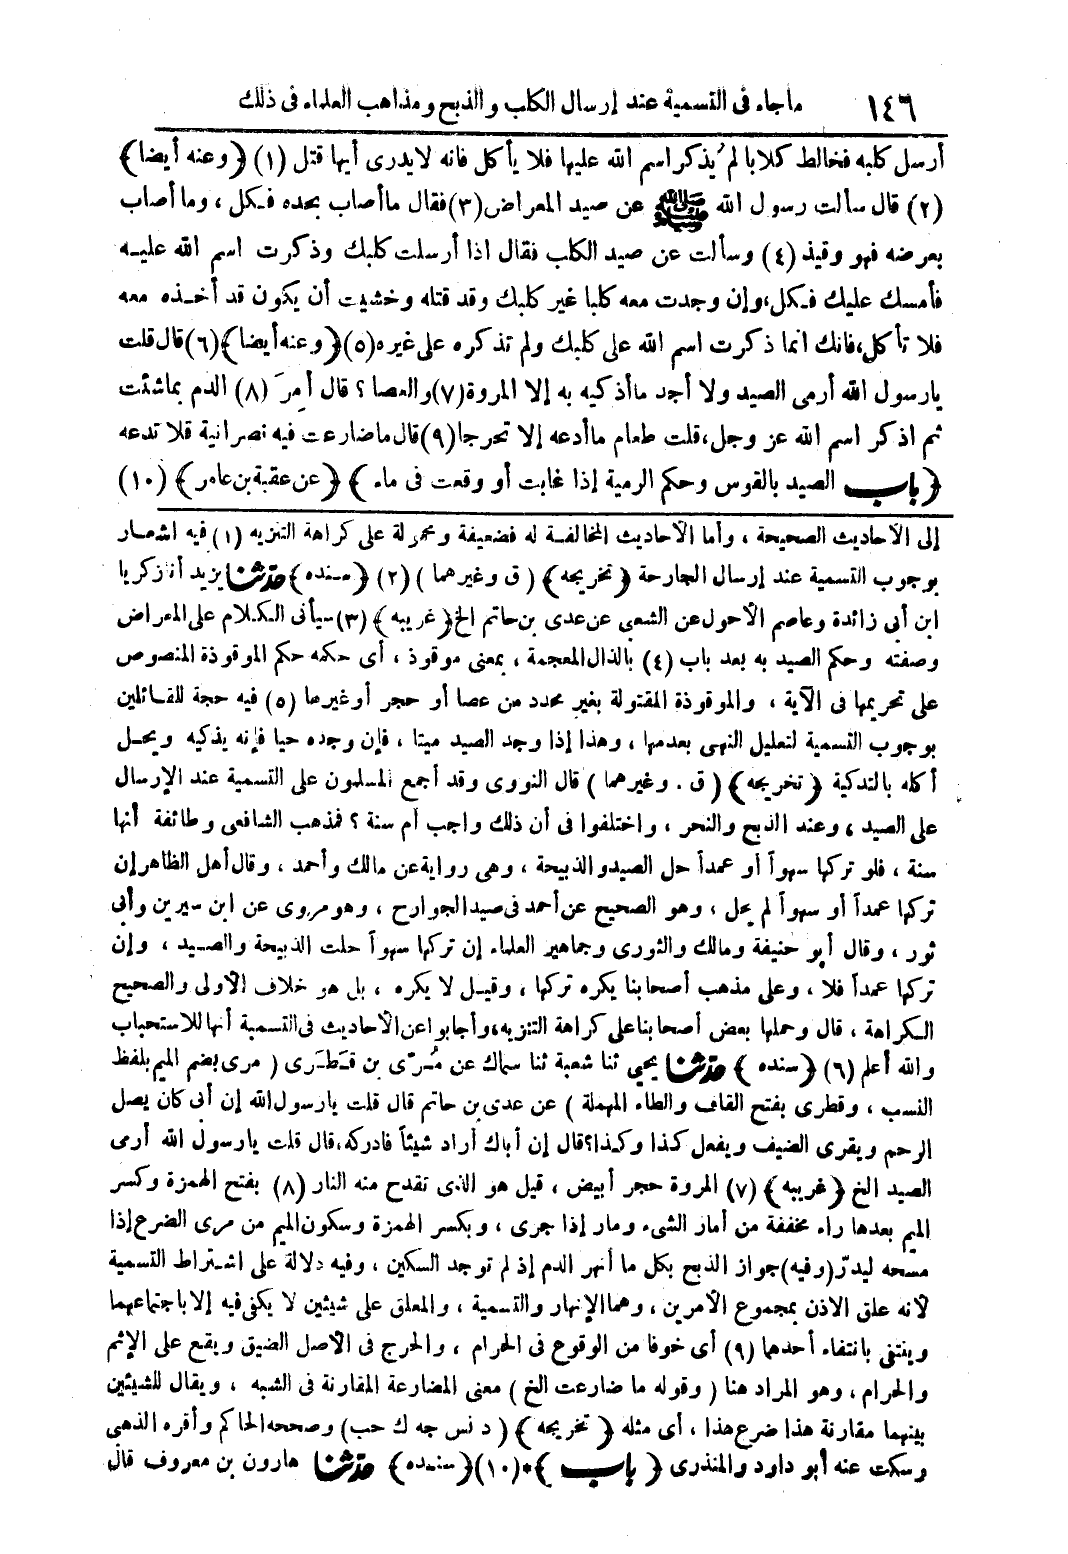 ١٤٦ ماجاء فى التسمية عند إرسال الكلب والذبح ومذاهب العلماء فى ذلك
أرسل كلبه فخالط كلابا لم يذكر اسم الله عليها فلا يأكل فانه لايدرى أيها قتل (١) ﴿وعنه أيضا﴾
(٢) قال سألت رسول الله ﷺ عن صيد المعراض(٣)فقال ماأصاب بحده فكل ، وماأصاب
بعرضه فهو وقيذ (٤) وسألت عن صيد الكلب فقال اذا أرسلت كلبك وذكرت اسم الله عليه
فأمسك عليك فكل،وإن وجدت معه كلبا غير كلبك وقد قتله وخشيت أن يكون قد أخذه معه
فلا تأكل،فانك انما ذكرت اسم الله على كلبك ولم تذكره على غيره(٥)﴿وعنه أيضا﴾(٦)قال قلت
يارسول الله أرمى الصيد ولا أجد ماأذكيه به إلا المروة(٧)والعصا ؟ قال أمِرَ (٨) الدم بماشئت
ثم اذكر اسم الله عز وجل،قلت طعام ماأدعه إلا تحرجا(٩)قال ماضارعت فيه نصرانية فلا تدعه
﴿باب الصيد بالقوس وحكم الرمية إذا غابت أو وقعت فى ماء ﴾ ﴿عن عقبة بن عامر﴾ (١٠)
إلى الأحاديث الصحيحة ، وأما الأحاديث المخالفة له فضعيفة ومحمولة على كراهة التنزيه (١) فيه اشعار
بوجوب التسمية عند إرسال الجارحة ﴿تخريجه﴾ (ق وغيرهما ) (٢) ﴿سنده﴾ حدثنا يزيد أنا زكريا
ابن أبى زائدة وعاصم الأحول عن الشعبى عن عدى بن حاتم الخ ﴿غريبه﴾ (٣) سيأتى الكلام على المعراض
وصفته وحكم الصيد به بعد باب (٤) بالذال المعجمة ، بمعنى موقوذ ، أى حكمه حكم الموقوذة المنصوص
على تحريمها فى الآية ، والموقوذة المقتولة بغير محدد من عصا أو حجر أوغيرها (٥) فيه حجة للقائلين
بوجوب التسمية لتعليل النهى بعدمها ، وهذا إذا وجد الصيد ميتا ، فإن وجده حيا فإنه يذكيه ويحل
أكله بالتذكية ﴿تخريجه﴾ (ق . وغيرهما ) قال النووى وقد أجمع المسلمون على التسمية عند الإرسال
على الصيد ، وعند الذبح والنحر ، واختلفوا فى أن ذلك واجب أم سنة ؟ فمذهب الشافعى وطائفة أنها
سنة ، فلو تركها سهواً أو عمداً حل الصيد والذبيحة ، وهى رواية عن مالك وأحمد ، وقال أهل الظاهر إن
تركها عمداً أو سهواً لم يحل ، وهو الصحيح عن أحمد فى صيد الجوارح ، وهو مروى عن ابن سيرين وأبى
ثور ، وقال أبو حنيفة ومالك والثورى وجماهير العلماء إن تركها سهواً حلت الذبيحة والصيد ، وإن
تركها عمداً فلا ، وعلى مذهب أصحابنا يكره تركها ، وقيل لا يكره ، بل هو خلاف الأولى والصحيح
الكراهة ، قال وحملها بعض أصحابنا على كراهة التنزيه،وأجابوا عن الأحاديث فى التسمية أنها للاستحباب
والله أعلم (٦) ﴿سنده ﴾ حدثنا يحيى ثنا شعبة ثنا سماك عن مُرّى بن قَطَرى ( مرى بضم الميم بلفظ
النسب ، وقطرى بفتح القاف والطاء المهملة ) عن عدى بن حاتم قال قلت يارسول الله إن أبى كان يصل
الرحم ويقرى الضيف ويفعل كذا وكذا؟قال إن أباك أراد شيئاً فادركه،قال قلت يارسول الله أرمى
الصيد الخ ﴿غريبه﴾ (٧) المروة حجر أبيض ، قيل هو الذى تقدح منه النار (٨) بفتح الهمزة وكسر
الميم بعدها راء مخففة من أمار الشىء ومار إذا جرى ، وبكسر الهمزة وسكون الميم من مرى الضرع إذا
مسحه ليدرّ(وفيه)جواز الذبح بكل ما أنهر الدم إذ لم توجد السكين ، وفيه دلالة على اشتراط التسمية
لأنه علق الاذن بمجموع الأمرين ، وهما الإنهار والتسمية ، والمعلق على شيئين لا يكفى فيه إلا باجتماعهما
وينتفى بانتفاء أحدهما (٩) أى خوفا من الوقوع فى الحرام ، والحرج فى الأصل الضيق ويقع على الإثم
والحرام ، وهو المراد هنا ( وقوله ما ضارعت الخ ) معنى المضارعة المقارنة فى الشبه ، ويقال للشيئين
بينهما مقارنة هذا ضرع هذا ، أى مثله ﴿ تخريجه ﴾ ( د نس جه ك حب) وصححه الحاكم وأقره الذهبى
وسكت عنه أبو داود والمنذرى ﴿ باب ﴾*(١٠)﴿سنده﴾ حدثنا هارون بن معروف قال